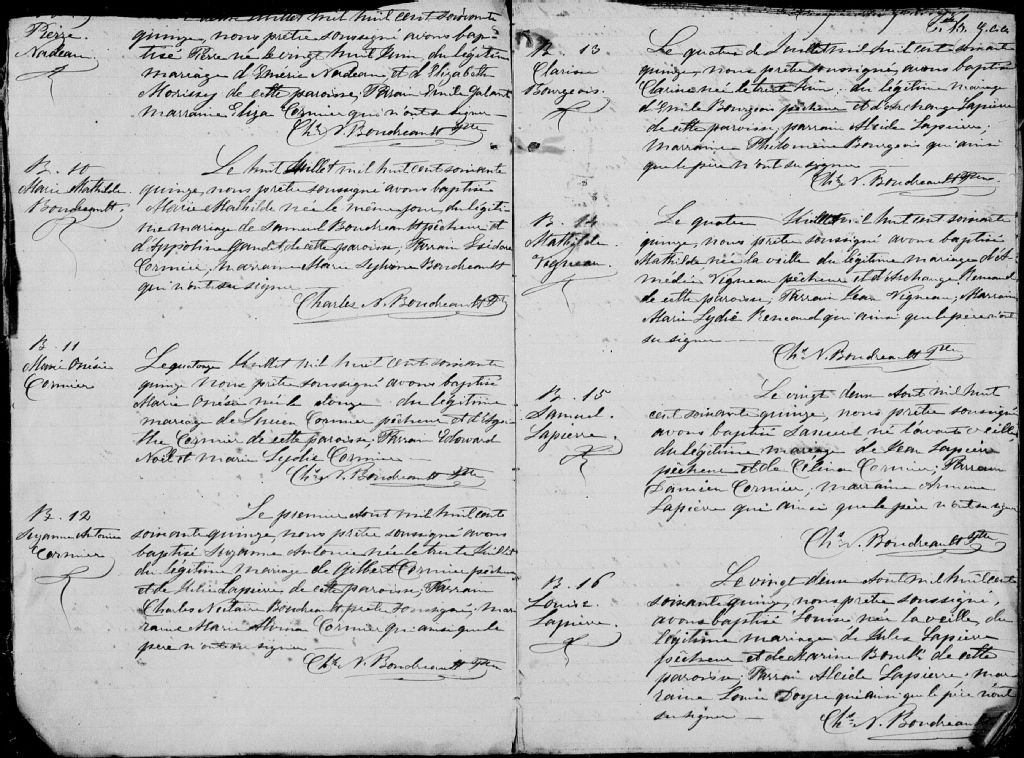 Pierre
Nadeau
Juillet mil huit cent soixante
quinze, nous prêtre soussigné avons bap-
tisé Pierre né le vingt huit Juin, du légitime
mariage d'Emerie Nadeau, et d'Elizabeth
Morissy de cette paroisse; Parrain Emile Galant
marraine Eliza Cormier qui n'ont su signer
Chs N. Boudreault Ptre
B. 10
Marie Mathilde
Boudreault.
Le huit Juillet mil huit cent soixante
quinze, nous prêtre soussigné avons baptisé
Marie Mathilde née le même jour, du légiti-
me mariage de Samuel Boudreault pêcheur et
d'Appoline de cette paroisse; Parrain Isidore
Cormier, marraine Marie Boudreault
qui n'ont su signer
Charles N. Boudreault Ptre
B. 11
Marie Onésie
Cormier
Le quatorze Juillet mil huit cent soixante
quinze nous prêtre soussigné avons baptisé
Marie Onésie née le douze du légitime
mariage de Cormier pêcheur et
Cormier de cette paroisse; Parrain Edouard
Noël et Marie Lydie Cormier
Chs N. Boudreault Ptre
B. 12
Suzanne Antonie
Cormier
Le premier Aout mil huit cent
soixante quinze, nous prêtre soussigné avons
baptisé Suzanne Antonie née le trente Juillet
du légitime mariage de Gilbert Cormier pêcheur
et de Lapierre de cette paroisse; Parrain
Charles Nectaire Boudreault prêtre soussigné, mar
raine Marie Cormier qui ainsi que le
père n'ont su signer
Chs N. Boudreault Ptre
B. 13
Clarisse
Bourgeois.
Le quatre de Juillet mil huit cent soixante
quinze, nous prêtre soussigné, avons baptisé
Clarisse née le trente Juin, du légitime mariage
d'Emile Bourgeois pêcheur et d'Archange Lapierre
de cette paroisse, parrain Alcide Lapierre,
Marraine Philomène Bourgeois qui ainsi
que le père n'ont su signer
Chs N. Boudreault Ptre
B. 14
Mathilde
Vigneau.
Le quatre Juillet mil huit cent soixante
quinze, nous prêtre soussigné avons baptisé
Mathilde née la veille du légitime mariage d'A
médée Vigneau pêcheur et d'Archange Renaud
de cette paroisse, Parrain Jean Vigneau, Marraine
Marie Lydie Reneaud qui ainsi que le père n'ont
su signer
Chs N. Boudreault Ptre
B. 15
Samuel
Lapierre.
Le vingt deux Aout mil huit
cent soixante quinze, nous prêtre soussigné
avons baptisé Samuel né l'avant veille
du légitime mariage de Jean Lapierre
pêcheur et de Célina Cormier; Parrain
Damien Cormier, marraine
Lapierre qui ainsi que le père n'ont su signer
Chs N. Boudreault Ptre
B. 16
Louise
Lapierre.
Le vingt deux Aout mil huit cent
soixante quinze, nous prêtre soussigné,
avons baptisé Louise née la veille, du
légitime mariage de Jules Lapierre
pêcheur et de Bourk de cette
paroisse; Parrain Alcide Lapierre, mar
raine Louise qui ainsi que le père n'ont
su signer
Chs N. Boudreault